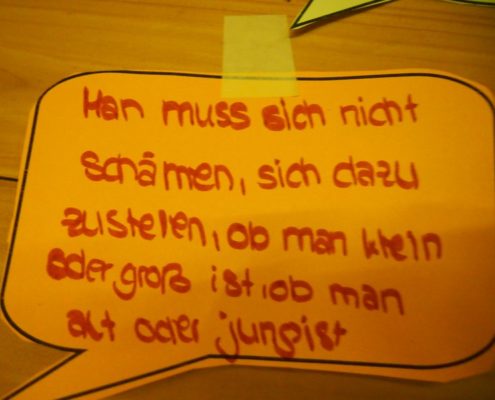 Man muss sich nicht
schämen, sich dazu
zustellen, ob man klein
oder groß ist, ob man
alt oder jung ist